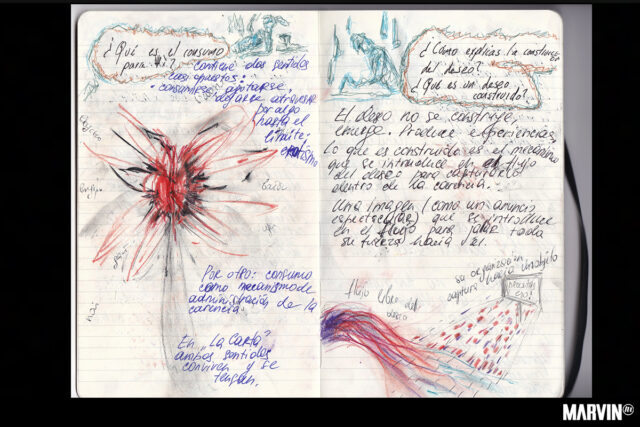 ¿Qué es el consumo
para ti?
contiene dos sentidos
casi opuestos:
• consumirse, agotarse,
dejarse atravesar
por algo
hasta el
límite:
erotismo
Por otro: consumo
como mecanismo de
administración de la
carencia
En "La Carta"
ambos sentidos
conviven y se
tensan.
¿Cómo explicas la construcción
del deseo?
¿Qué es un deseo
construido?
El deseo no se construye,
emerge. Produce experiencias,
Lo que es construido es el mecanismo
que se introduce en el flujo
del deseo para capturarlo
dentro de la carencia.
Una imagen (como un anuncio
espectacular) que se introduce
en el flujo para jalar toda
su fuerza hacia sí.
su organización
captura hacia un objeto
flujo libre del
deseo
MARVIN